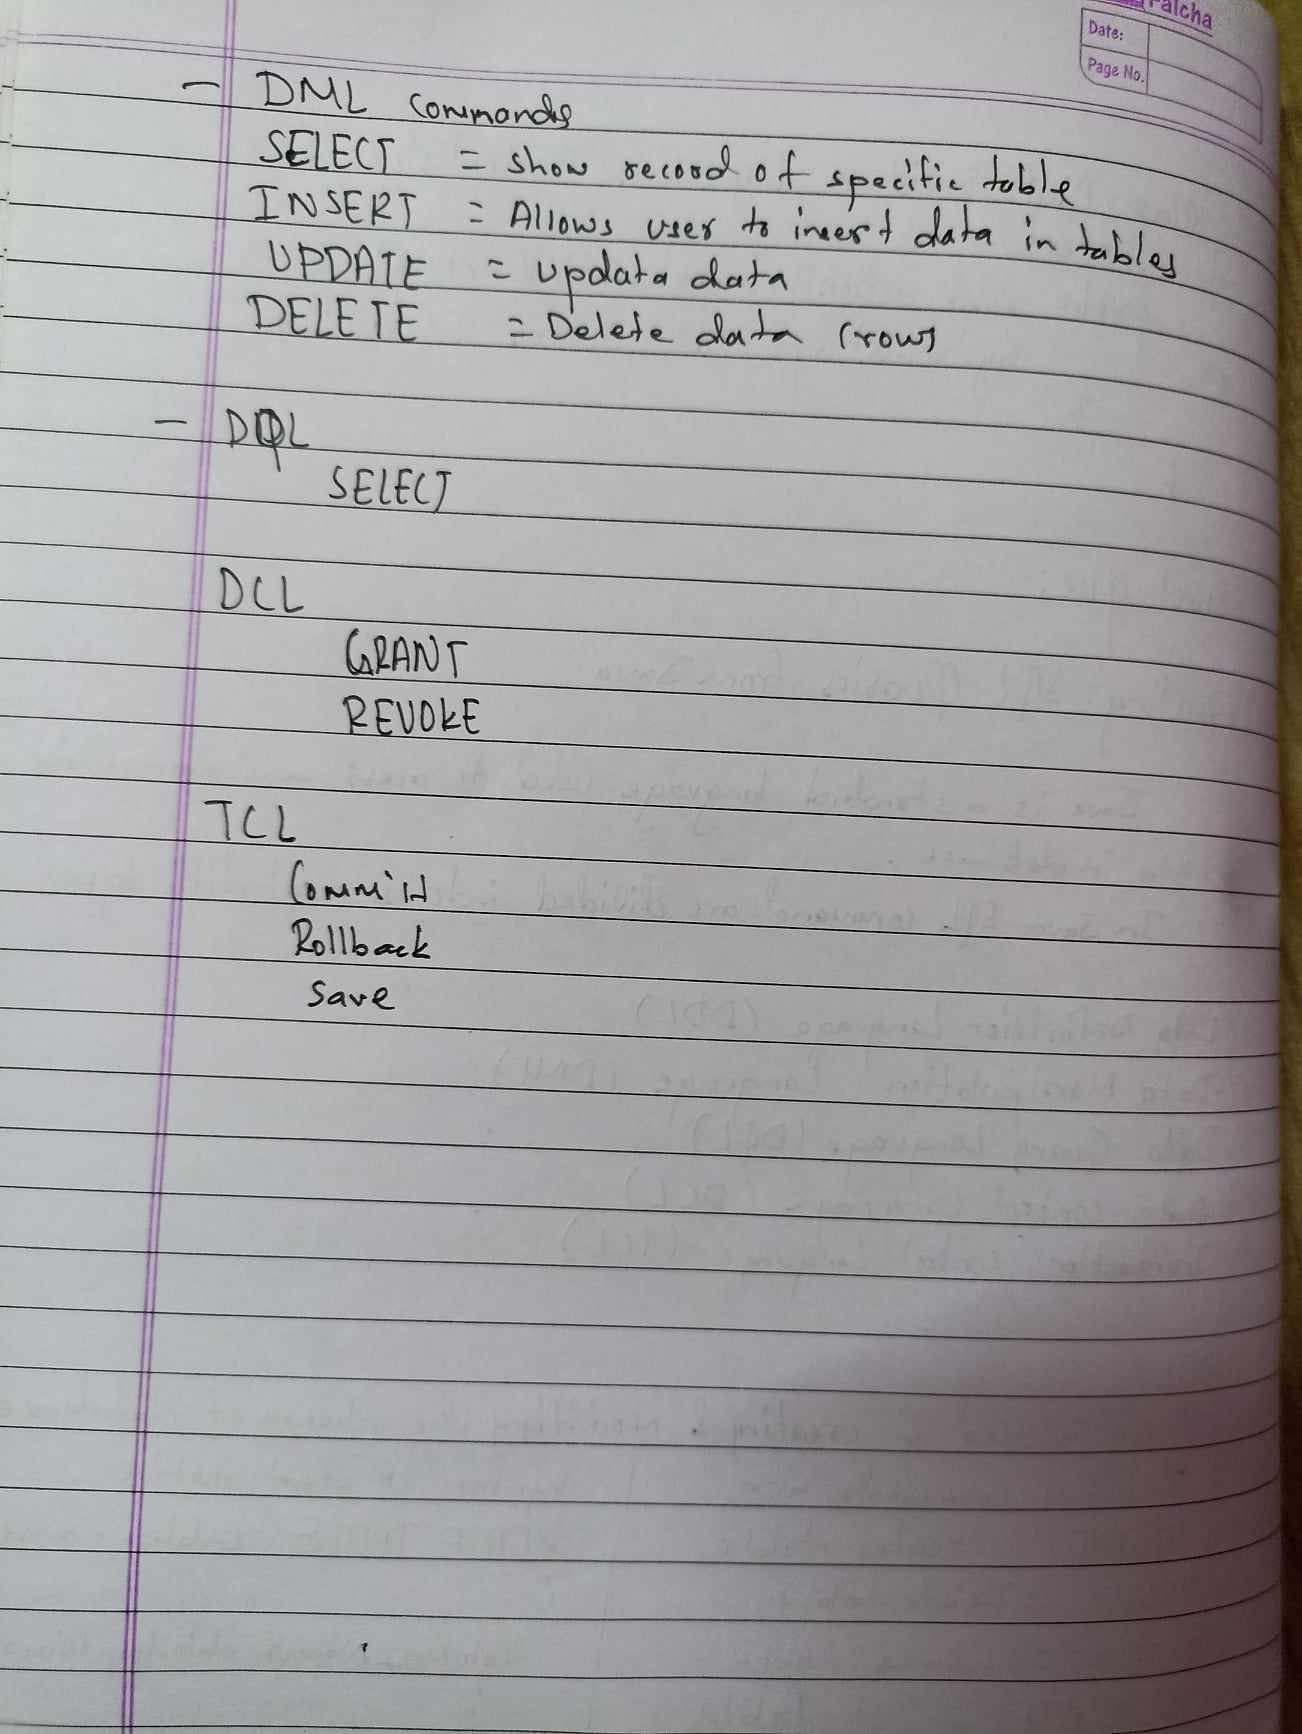 Palcha
Date:
Page No.
- DML Commands
SELECT = show record of specific table
INSERT = Allows user to insert data in tables
UPDATE = updata data
DELETE = Delete data (rows
- DQL
SELECT
DCL
GRANT
REVOKE
TCL
Commit
Rollback
Save